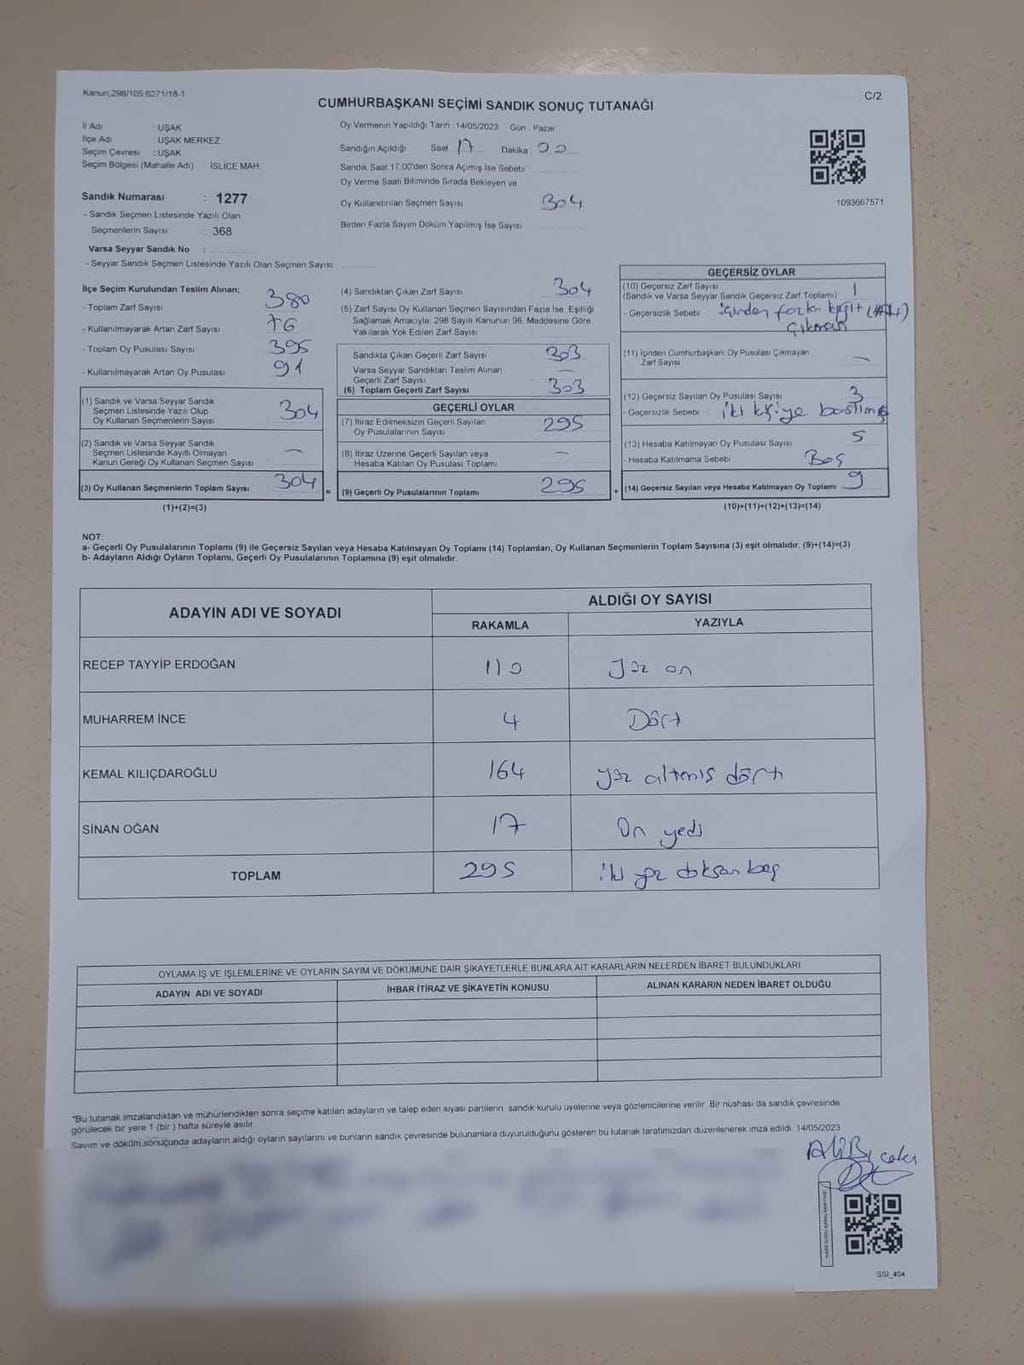 Kanun;298/105;6271/18-1
C/2
CUMHURBAŞKANI SEÇİMİ SANDIK SONUÇ TUTANAĞI
İl Adı : UŞAK
İlçe Adı : UŞAK MERKEZ
Seçim Çevresi : UŞAK
Seçim Bölgesi (Mahalle Adı) : İSLİCE MAH.
Sandık Numarası : 1277
- Sandık Seçmen Listesinde Yazılı Olan
Seçmenlerin Sayısı : 368
Varsa Seyyar Sandık No :
- Seyyar Sandık Seçmen Listesinde Yazılı Olan Seçmen Sayısı:
Oy Vermenin Yapıldığı Tarih : 14/05/2023 Gün : Pazar
Sandığın Açıldığı Saat 17 Dakika 00
Sandık Saat 17:00'den Sonra Açımış İse Sebebi :
Oy Verme Saati Bitiminde Sırada Bekleyen ve
Oy Kullandırılan Seçmen Sayısı 304
Birden Fazla Sayım Döküm Yapılmış İse Sayısı
1093667571
İlçe Seçim Kurulundan Teslim Alınan;
- Toplam Zarf Sayısı 380
- Kullanılmayarak Artan Zarf Sayısı 76
- Toplam Oy Pusulası Sayısı 395
- Kullanılmayarak Artan Oy Pusulası 91
(1) Sandık ve Varsa Seyyar Sandık
Seçmen Listesinde Yazılı Olup
Oy Kullanan Seçmenlerin Sayısı 304
(2) Sandık ve Varsa Seyyar Sandık
Seçmen Listesinde Kayıtlı Olmayan
Kanun Gereği Oy Kullanan Seçmen Sayısı —
(3) Oy Kullanan Seçmenlerin Toplam Sayısı 304
(1)+(2)=(3)
(4) Sandıktan Çıkan Zarf Sayısı 304
(5) Zarf Sayısı Oy Kullanan Seçmen Sayısından Fazla İse, Eşitliği
Sağlamak Amacıyla; 298 Sayılı Kanunun 98. Maddesine Göre
Yakılarak Yok Edilen Zarf Sayısı
Sandıkta Çıkan Geçerli Zarf Sayısı 303
Varsa Seyyar Sandıktan Teslim Alınan
Geçerli Zarf Sayısı —
(6) Toplam Geçerli Zarf Sayısı 303
GEÇERLİ OYLAR
(7) İtiraz Edilmeksizin Geçerli Sayılan
Oy Pusulalarının Sayısı 295
(8) İtiraz Üzerine Geçerli Sayılan veya
Hesaba Katılan Oy Pusulası Toplamı —
= (9) Geçerli Oy Pusulalarının Toplamı 295
GEÇERSİZ OYLAR
(10) Geçersiz Zarf Sayısı
(Sandık ve Varsa Seyyar Sandık Geçersiz Zarf Toplamı) 1
- Geçersizlik Sebebi : içinden fazla kağıt
çıkması
(11) İçinden Cumhurbaşkanı Oy Pusulası Çıkmayan
Zarf Sayısı —
(12) Geçersiz Sayılan Oy Pusulası Sayısı 3
- Geçersizlik Sebebi : iki kişiye basılmış
(13) Hesaba Katılmayan Oy Pusulası Sayısı 5
- Hesaba Katılmama Sebebi : Boş
+ (14) Geçersiz Sayılan veya Hesaba Katılmayan Oy Toplamı 9
(10)+(11)+(12)+(13)=(14)
NOT:
a- Geçerli Oy Pusulalarının Toplamı (9) ile Geçersiz Sayılan veya Hesaba Katılmayan Oy Toplamı (14) Toplamları, Oy Kullanan Seçmenlerin Toplam Sayısına (3) eşit olmalıdır. (9)+(14)=(3)
b- Adayların Aldığı Oyların Toplamı, Geçerli Oy Pusulalarının Toplamına (9) eşit olmalıdır.
ADAYIN ADI VE SOYADI ALDIĞI OY SAYISI
RAKAMLA YAZIYLA
RECEP TAYYİP ERDOĞAN 110 yüz on
MUHARREM İNCE 4 Dört
KEMAL KILIÇDAROĞLU 164 yüz altmış dört
SİNAN OĞAN 17 On yedi
TOPLAM 295 iki yüz doksan beş
OYLAMA İŞ VE İŞLEMLERİNE VE OYLARIN SAYIM VE DÖKÜMÜNE DAİR ŞİKAYETLERLE BUNLARA AİT KARARLARIN NELERDEN İBARET BULUNDUKLARI
ADAYIN ADI VE SOYADI İHBAR İTİRAZ VE ŞİKAYETİN KONUSU ALINAN KARARIN NEDEN İBARET OLDUĞU
"Bu tutanak imzalandıktan ve mühürlendikten sonra seçime katılan adayların ve talep eden siyasi partilerin sandık kurulu üyelerine veya gözlemcilerine verilir. Bir nüshası da sandık çevresinde
görülecek bir yere 1 (bir ) hafta süreyle asılır.
Sayım ve döküm sonucunda adayların aldığı oyların sayılarını ve bunların sandık çevresinde bulunanlara duyurulduğunu gösteren bu tutanak tarafımızdan düzenlenerek imza edildi. 14/05/2023
SSI_404